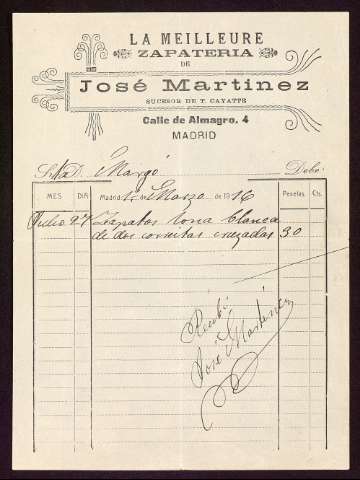 LA MEILLEURE
ZAPATERIA
DE
José Martinez
SUCESOR DE T. CAYATTE
Calle de Almagro, 4
MADRID
Debe:
MES DIA Madrid 15 de Marzo de 1916 Pesetas Cts.
Julio 27 Zapatos lona blanca
de dos correitas cruzadas 30
Recibí
José Martínez